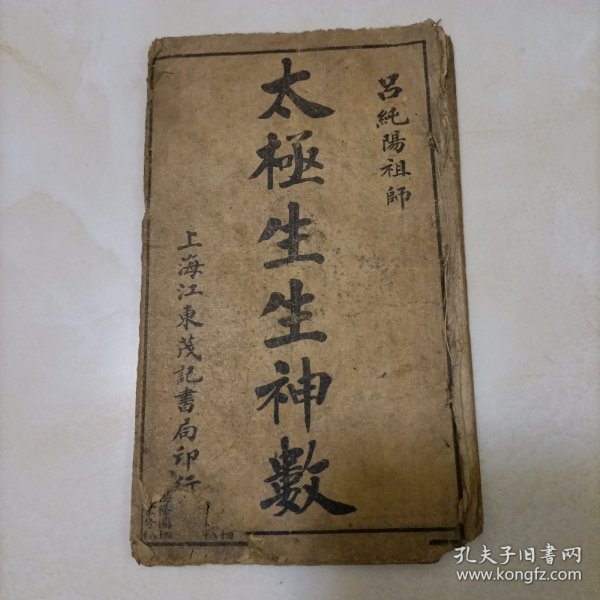 呂純陽祖師
太極生生神數
上海江東茂記書局印行
孔夫子旧书网
www.kongfz.com